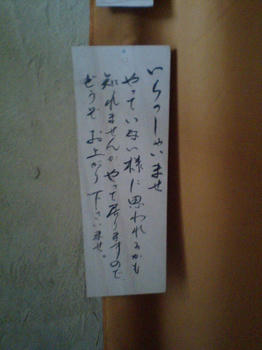 いらっしゃいませ
やっていない様に思われるかも
知れませんがやって居りますので
どうぞお上がり下さいませ。